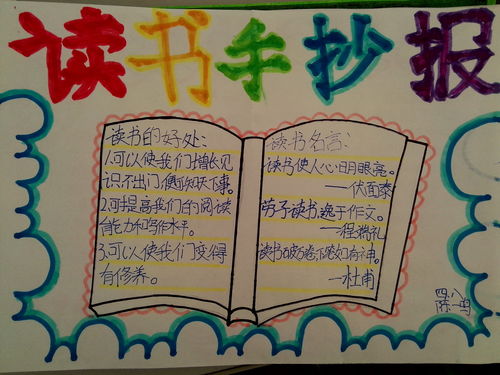 读书手抄报
读书的好处:
1.可以使我们增长见
识,不出门,便可知天下事。
2.可提高我们的阅读
能力和写作水平。
3.可以使我们变得
有修养。
读书名言:
读书使人心明眼亮。
——伏
劳于读书,逸于作文。
——程端礼
读书破万卷,下笔如有神。
—杜甫
四、八
陈一